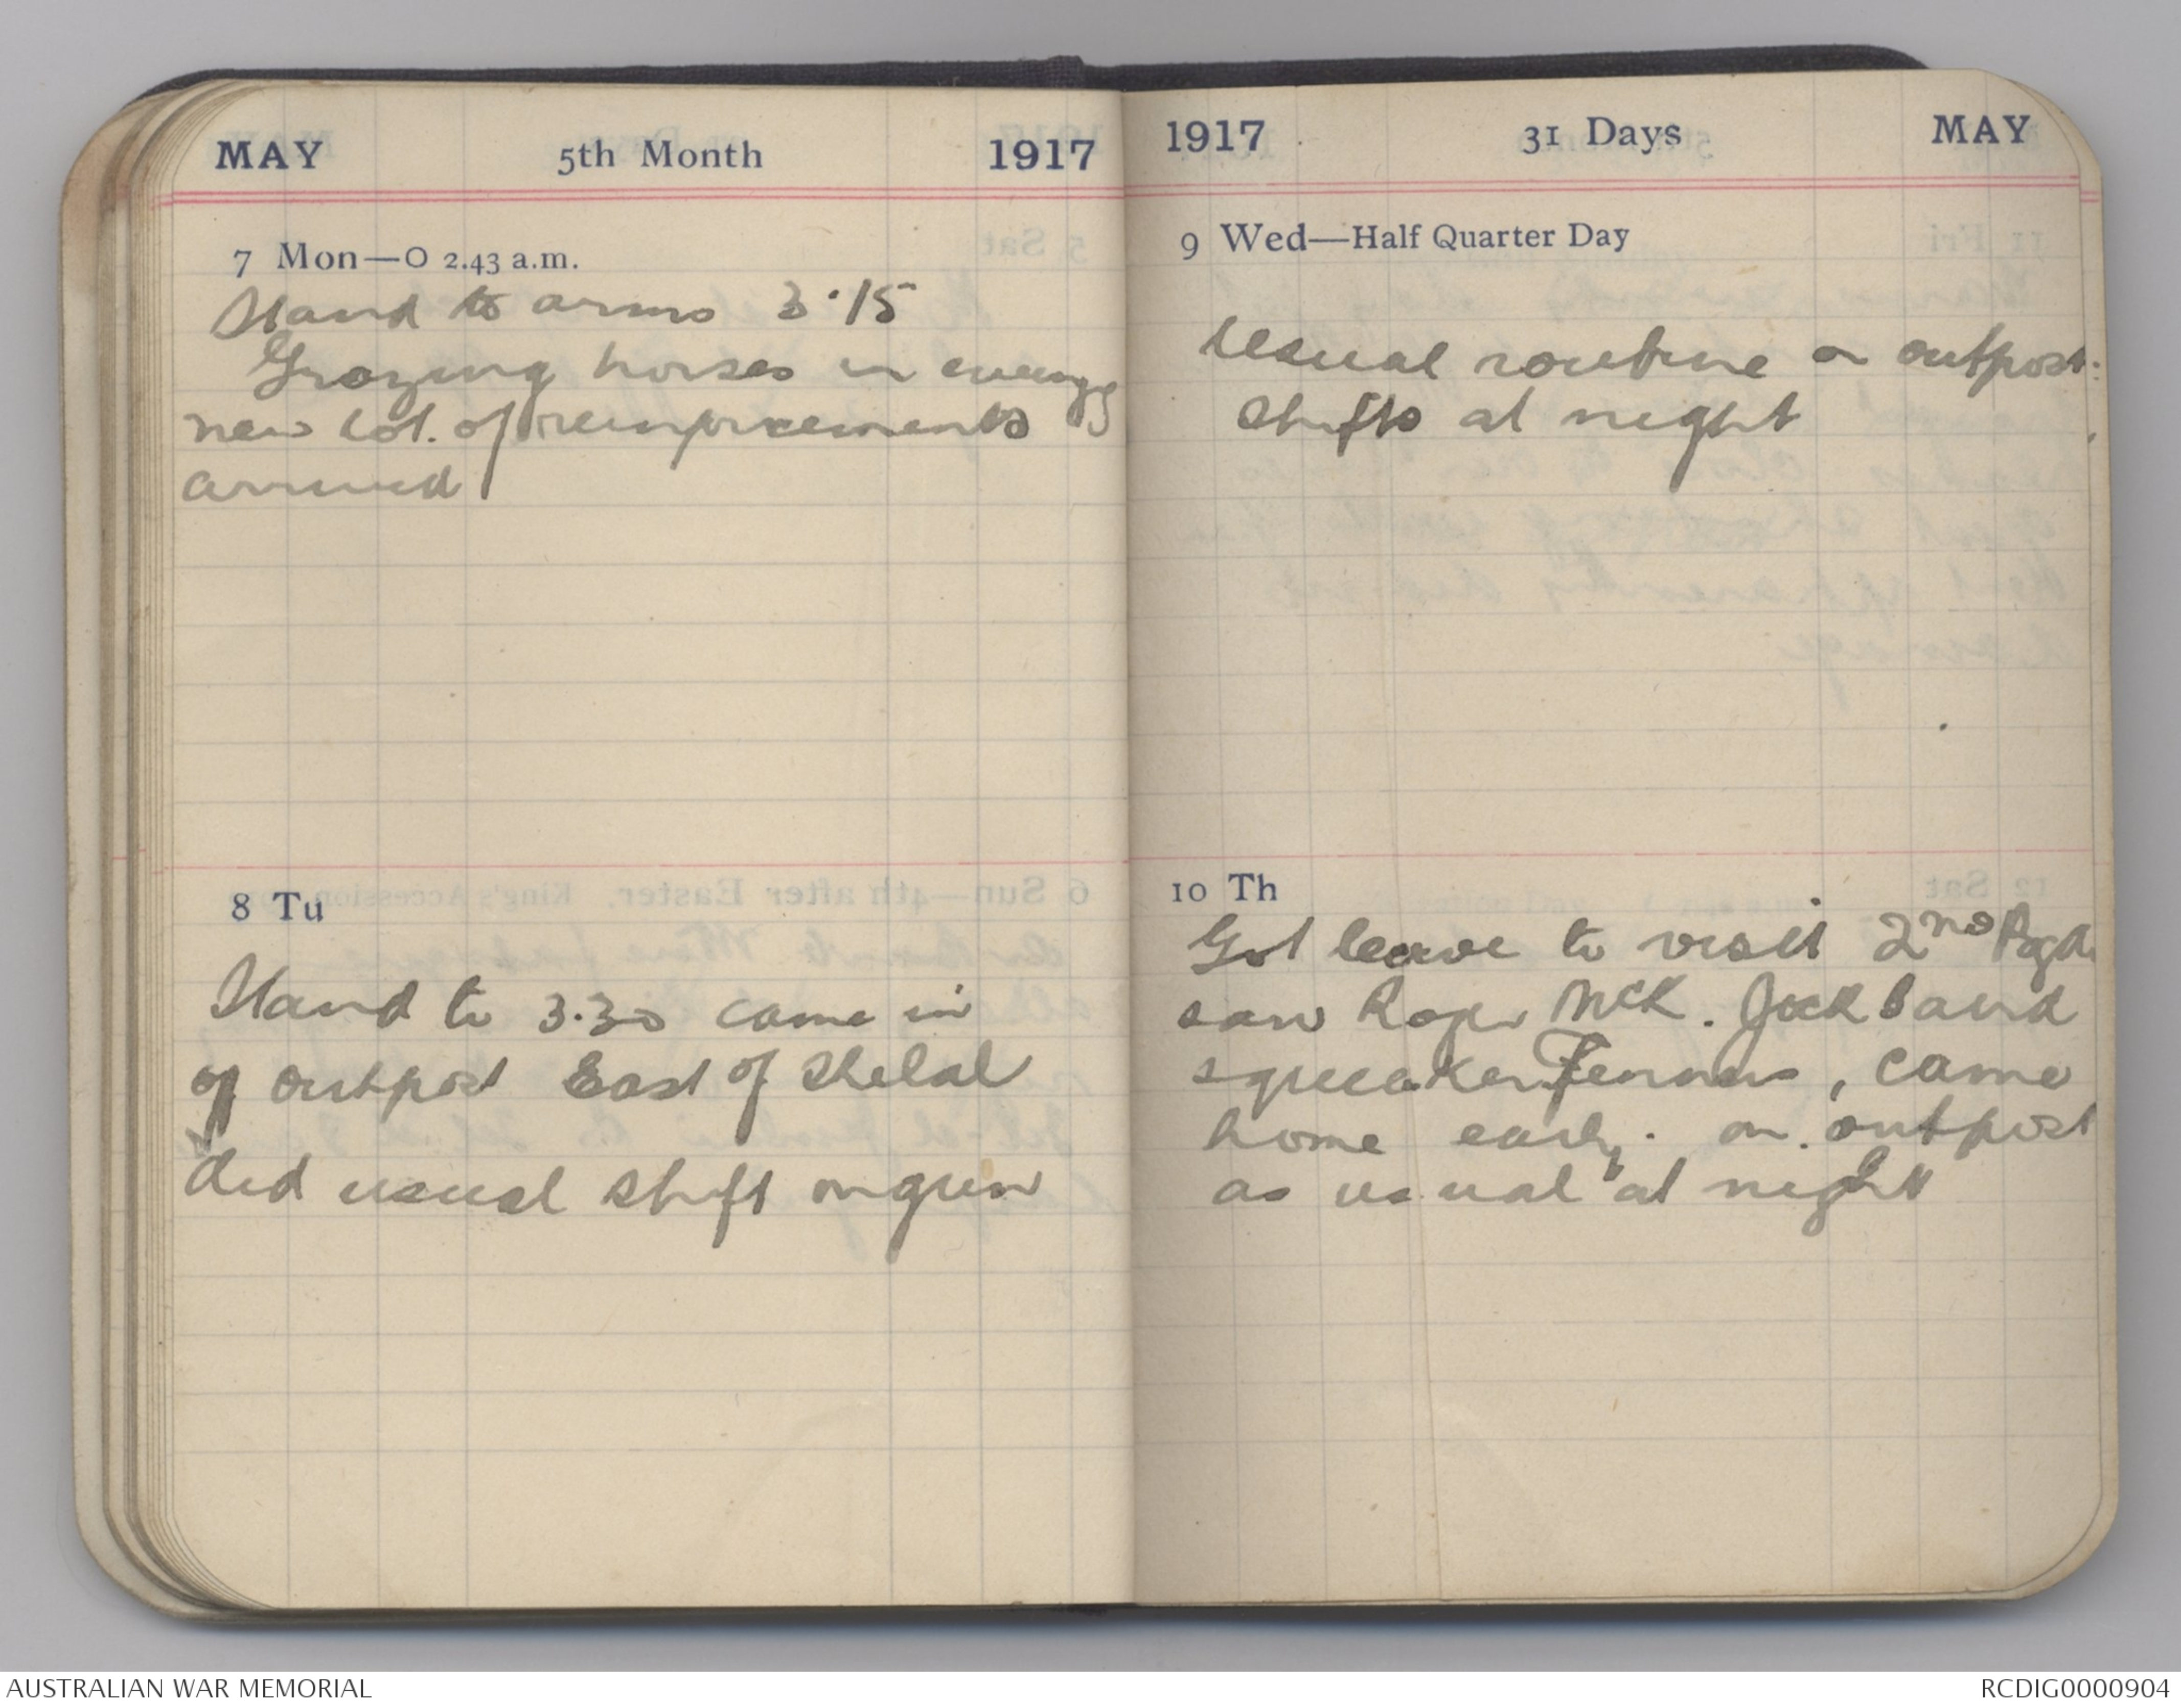 MAY 5th Month 1917
7 Mon—O 2.43 a.m.
Stand to arms 3.15
Grazing horses in evening
new lot. of reinforcements
arrived
8 Tu
Stand to 3.30 came in
of outpost East of Shelal
did usual shift on gun
1917 31 Days MAY
9 Wed—Half Quarter Day
Usual routine on outpost
shifts at night
10 Th
Got leave to visit 2nd
saw Roper McK. Jack and
squeaker, came
home early. on outpost
as usual at night
AUSTRALIAN WAR MEMORIAL
RCDIG0000904